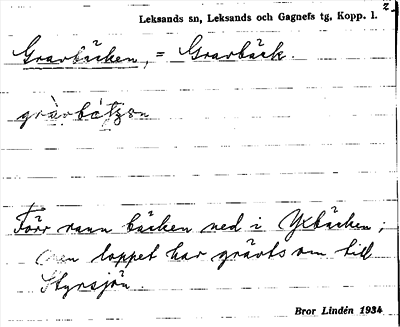 2.
Leksands sn, Leksands och Gagnefs tg, Kopp. l.
Gravbäcken, = Gravbäck.
Förr rann bäcken ned i Yxbäcken;
men loppet har grävts om till
Styrsjön.
Bror Lindén 1934